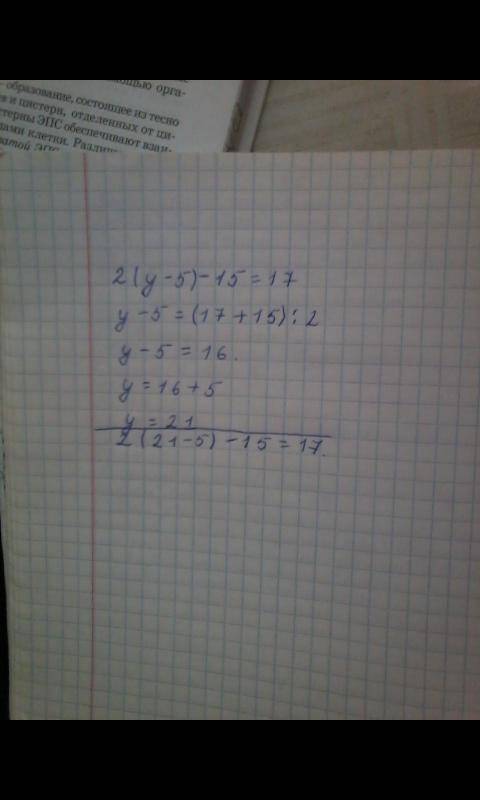 мощью орга-
образование, состоящее из тесно
в и цистерн, отделенных от ци-
стерны ЭПС обеспечивают взаи-
лами клетки.
2(y-5)-15=17
y-5=(17+15):2
y-5=16.
y=16+5
y=21
2(21-5)-15=17.